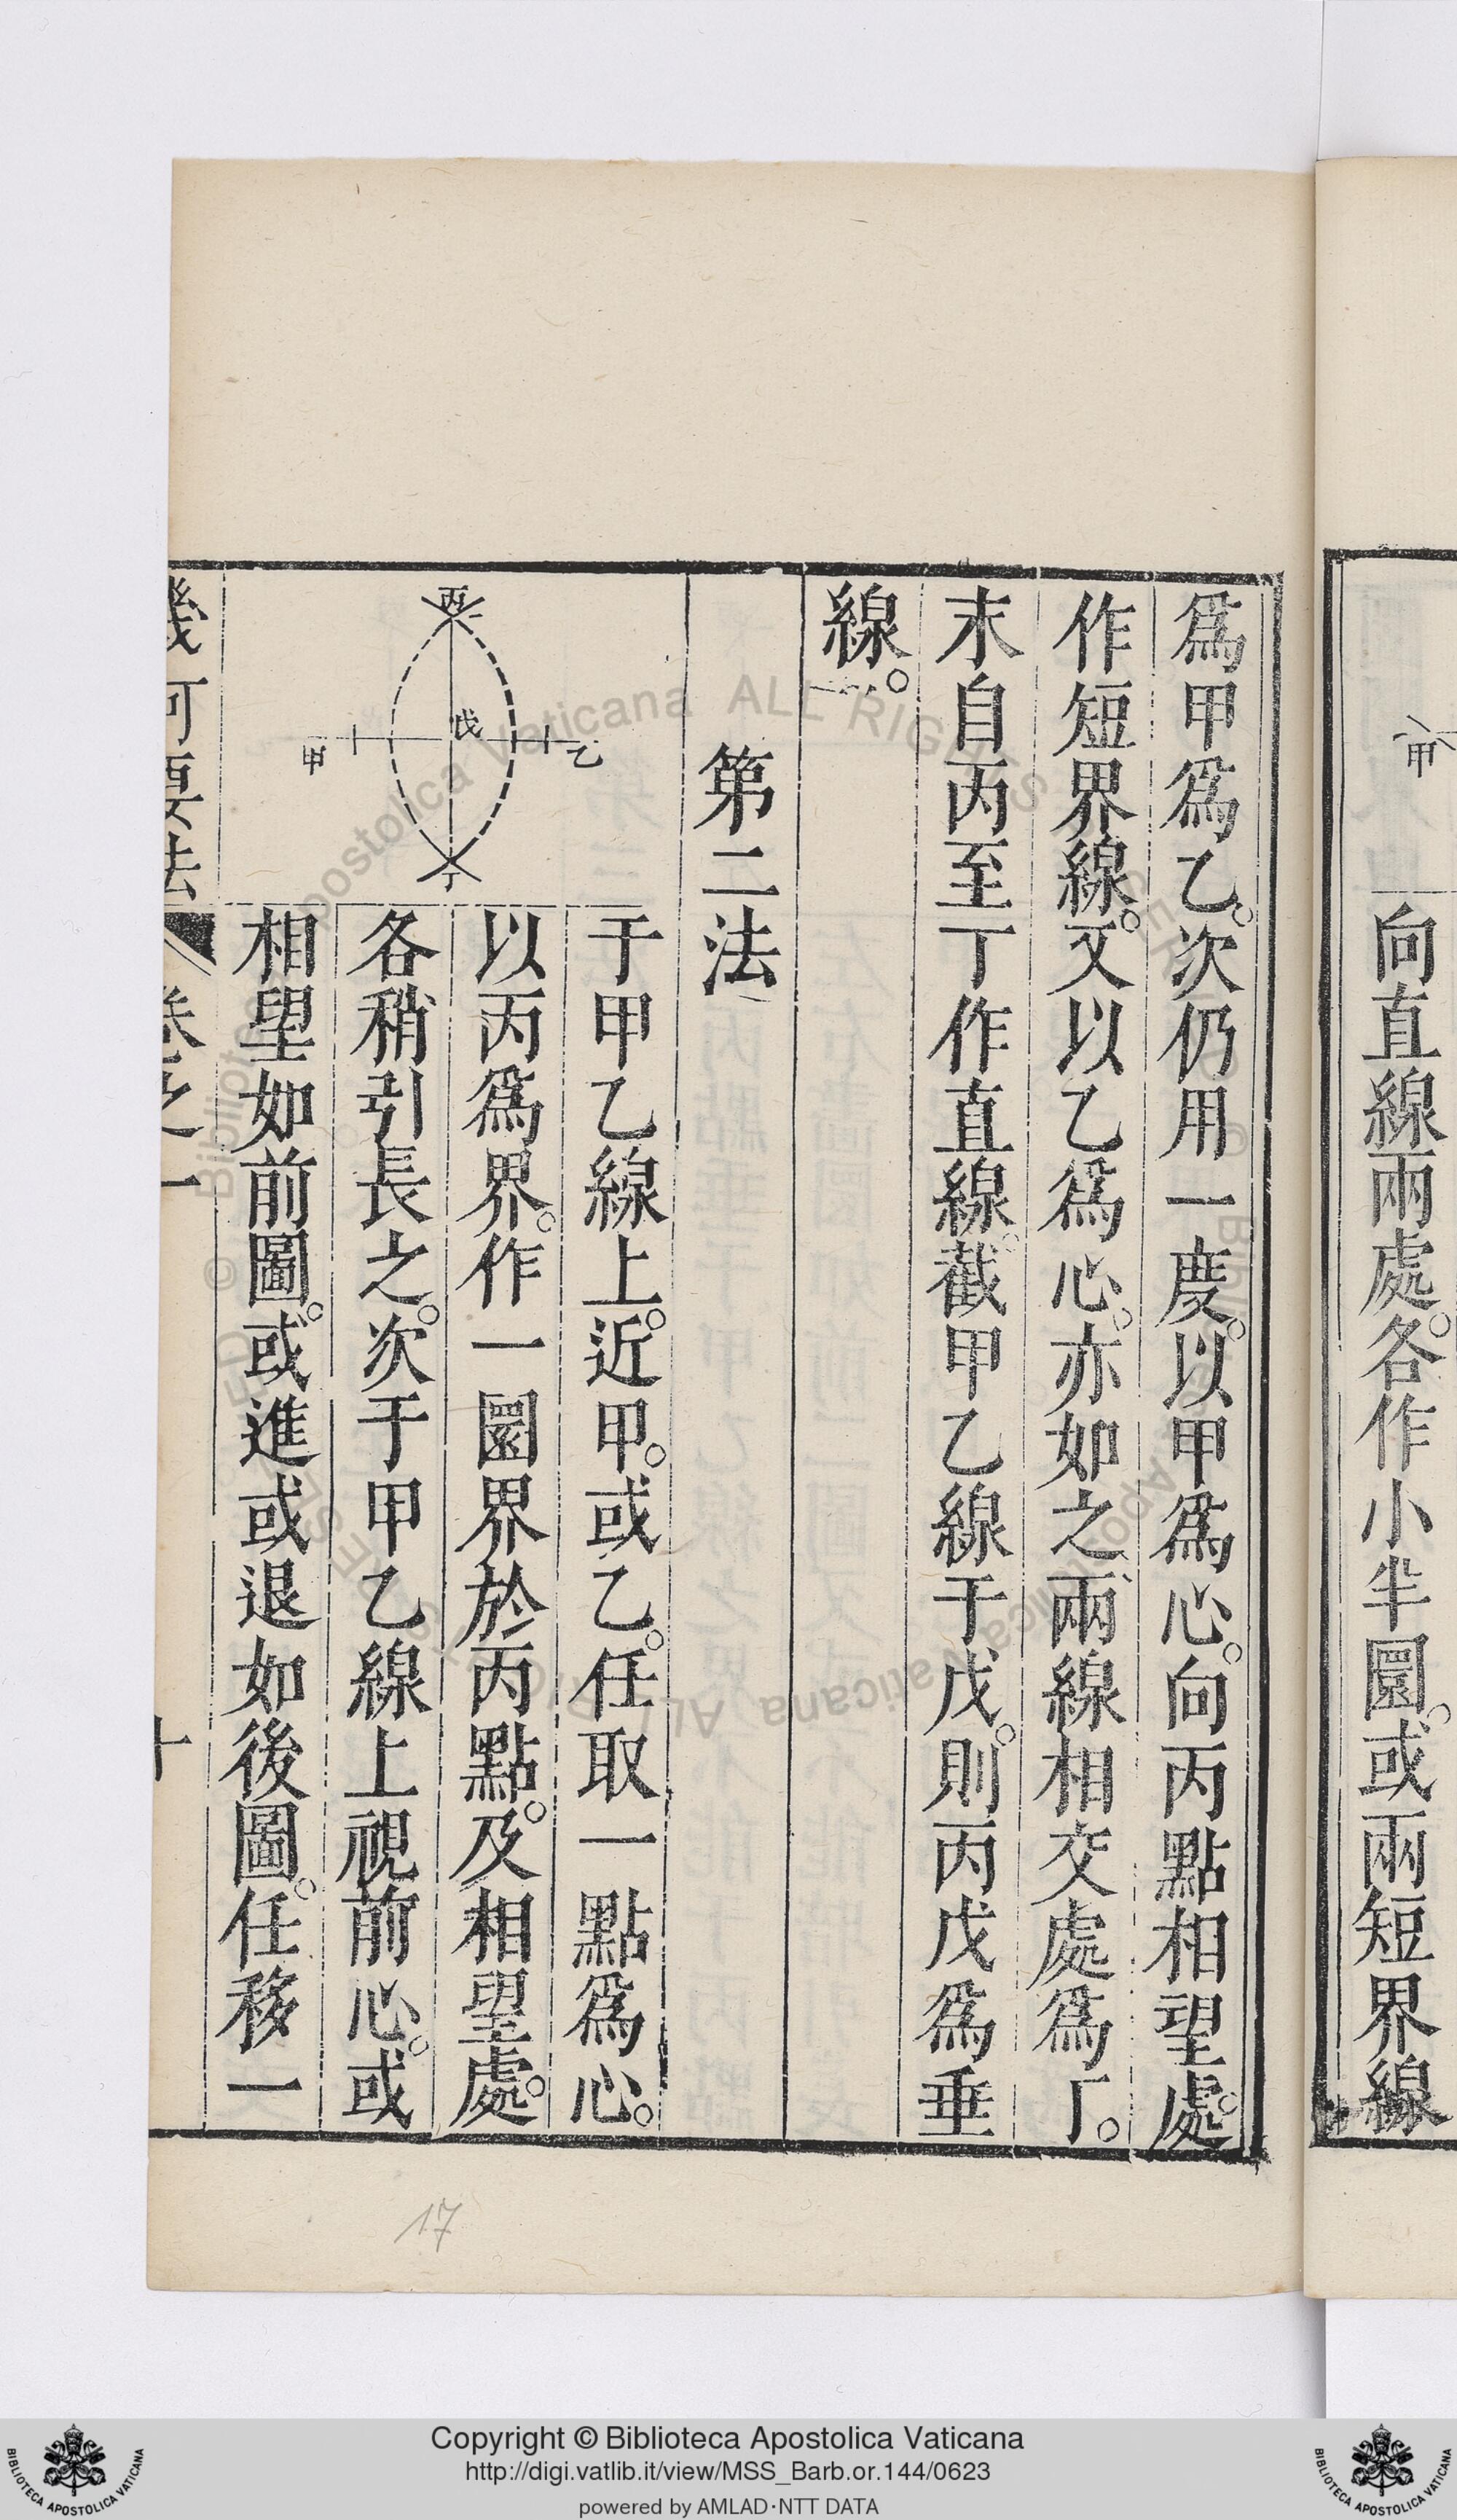 甲
向直線兩處。各作小半圜。或兩短界線
爲甲爲乙。次仍用一度。以甲爲心。向丙點相望處。
作短界線。又以乙爲心。亦如之、兩線相交處爲丁。
末自丙至丁作直線。截甲乙線于戊。則丙戊爲垂
線。
第二法
于甲乙線上。近甲。或乙。任取一點爲心。
以丙爲界。作一圜界於丙點。及相望處。
各稍引長之。次于甲乙線上視前心。或
相望如前圖。或進或退如後圖。任移一
丙
戊
甲
乙
丁
幾何要法
卷之一
十
17
Copyright © Biblioteca Apostolica Vaticana
http://digi.vatlib.it/view/MSS_Barb.or.144/0623
powered by AMLAD·NTT DATA
BIBLIOTECA APOSTOLICA VATICANA
BIBLIOTECA APOSTOLICA VATICANA